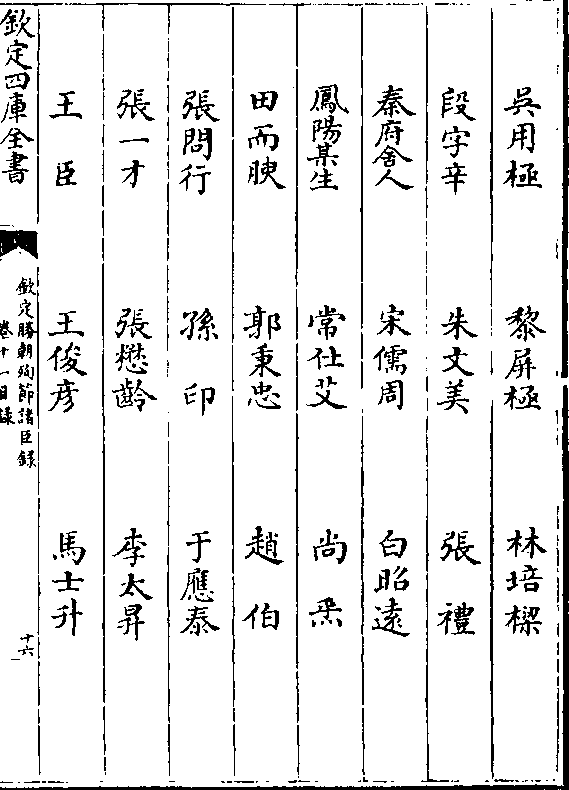 吳用極 黎屏極 林培樑
段字辛 朱文美 張禮
秦府舍人 宋儒周 白昭遠
鳳陽某生 常仕艾 尚𤋱
田而腴 郭秉忠 趙伯
張問行 孫印 于應泰
張一才 張懋齡 李太昇
王臣 王俊彥 馬士升
欽定四庫全書
欽定勝朝殉節諸臣錄
卷十一目錄
十六